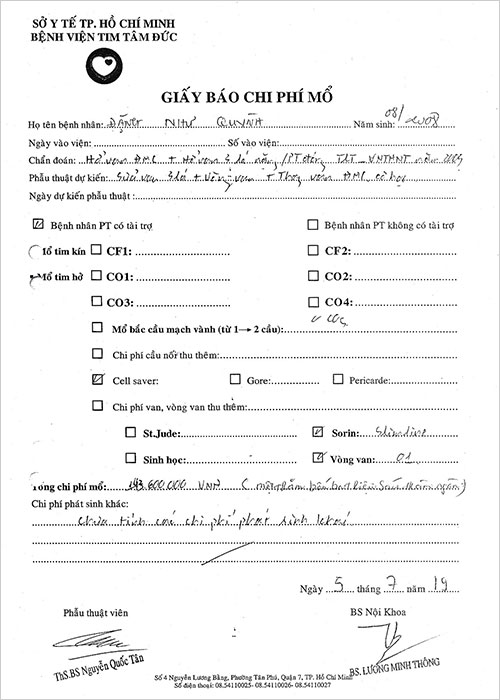 SỞ Y TẾ TP. HỒ CHÍ MINH
BỆNH VIỆN TIM TÂM ĐỨC
GIẤY BÁO CHI PHÍ MỔ
Họ tên bệnh nhân: ĐẶNG NHƯ QUỲNH Năm sinh: 08/2008
Ngày vào viện: Số vào viện:
Chẩn đoán: Hở van ĐMC + Hở van 2 lá nặng /PT đóng TLT _ VNTMNT năm 2009
Phẫu thuật dự kiến: Sửa van 2 lá + vòng van + Thay van ĐMC cơ học
Ngày dự kiến phẫu thuật:
Bệnh nhân PT có tài trợ Bệnh nhân PT không có tài trợ
Mổ tim kín CF1: CF2:
Mổ tim hở CO1: CO2:
CO3: CO4:
Mổ bắc cầu mạch vành (từ 1→ 2 cầu):
Chi phí cầu nối thu thêm:
Cell saver: Gore: Pericarde:
Chi phí van, vòng van thu thêm:
St.Jude: Sorin: Slimline
Sinh học: Vòng van: 01
Tổng chi phí mổ: 143 600 000 VNĐ ( một trăm bốn ba triệu sáu trăm ngàn )
Chi phí phát sinh khác:
chưa tính các chi phí phát sinh khác
Ngày 5 tháng 7 năm 19
Phẫu thuật viên BS Nội Khoa
ThS.BS Nguyễn Quốc Tân BS. LƯƠNG MINH THÔNG
Số 4 Nguyễn Lương Bằng, Phường Tân Phú, Quận 7, TP. Hồ Chí Minh
Số điện thoại: 08.54110025- 08.54110026- 08.54110027